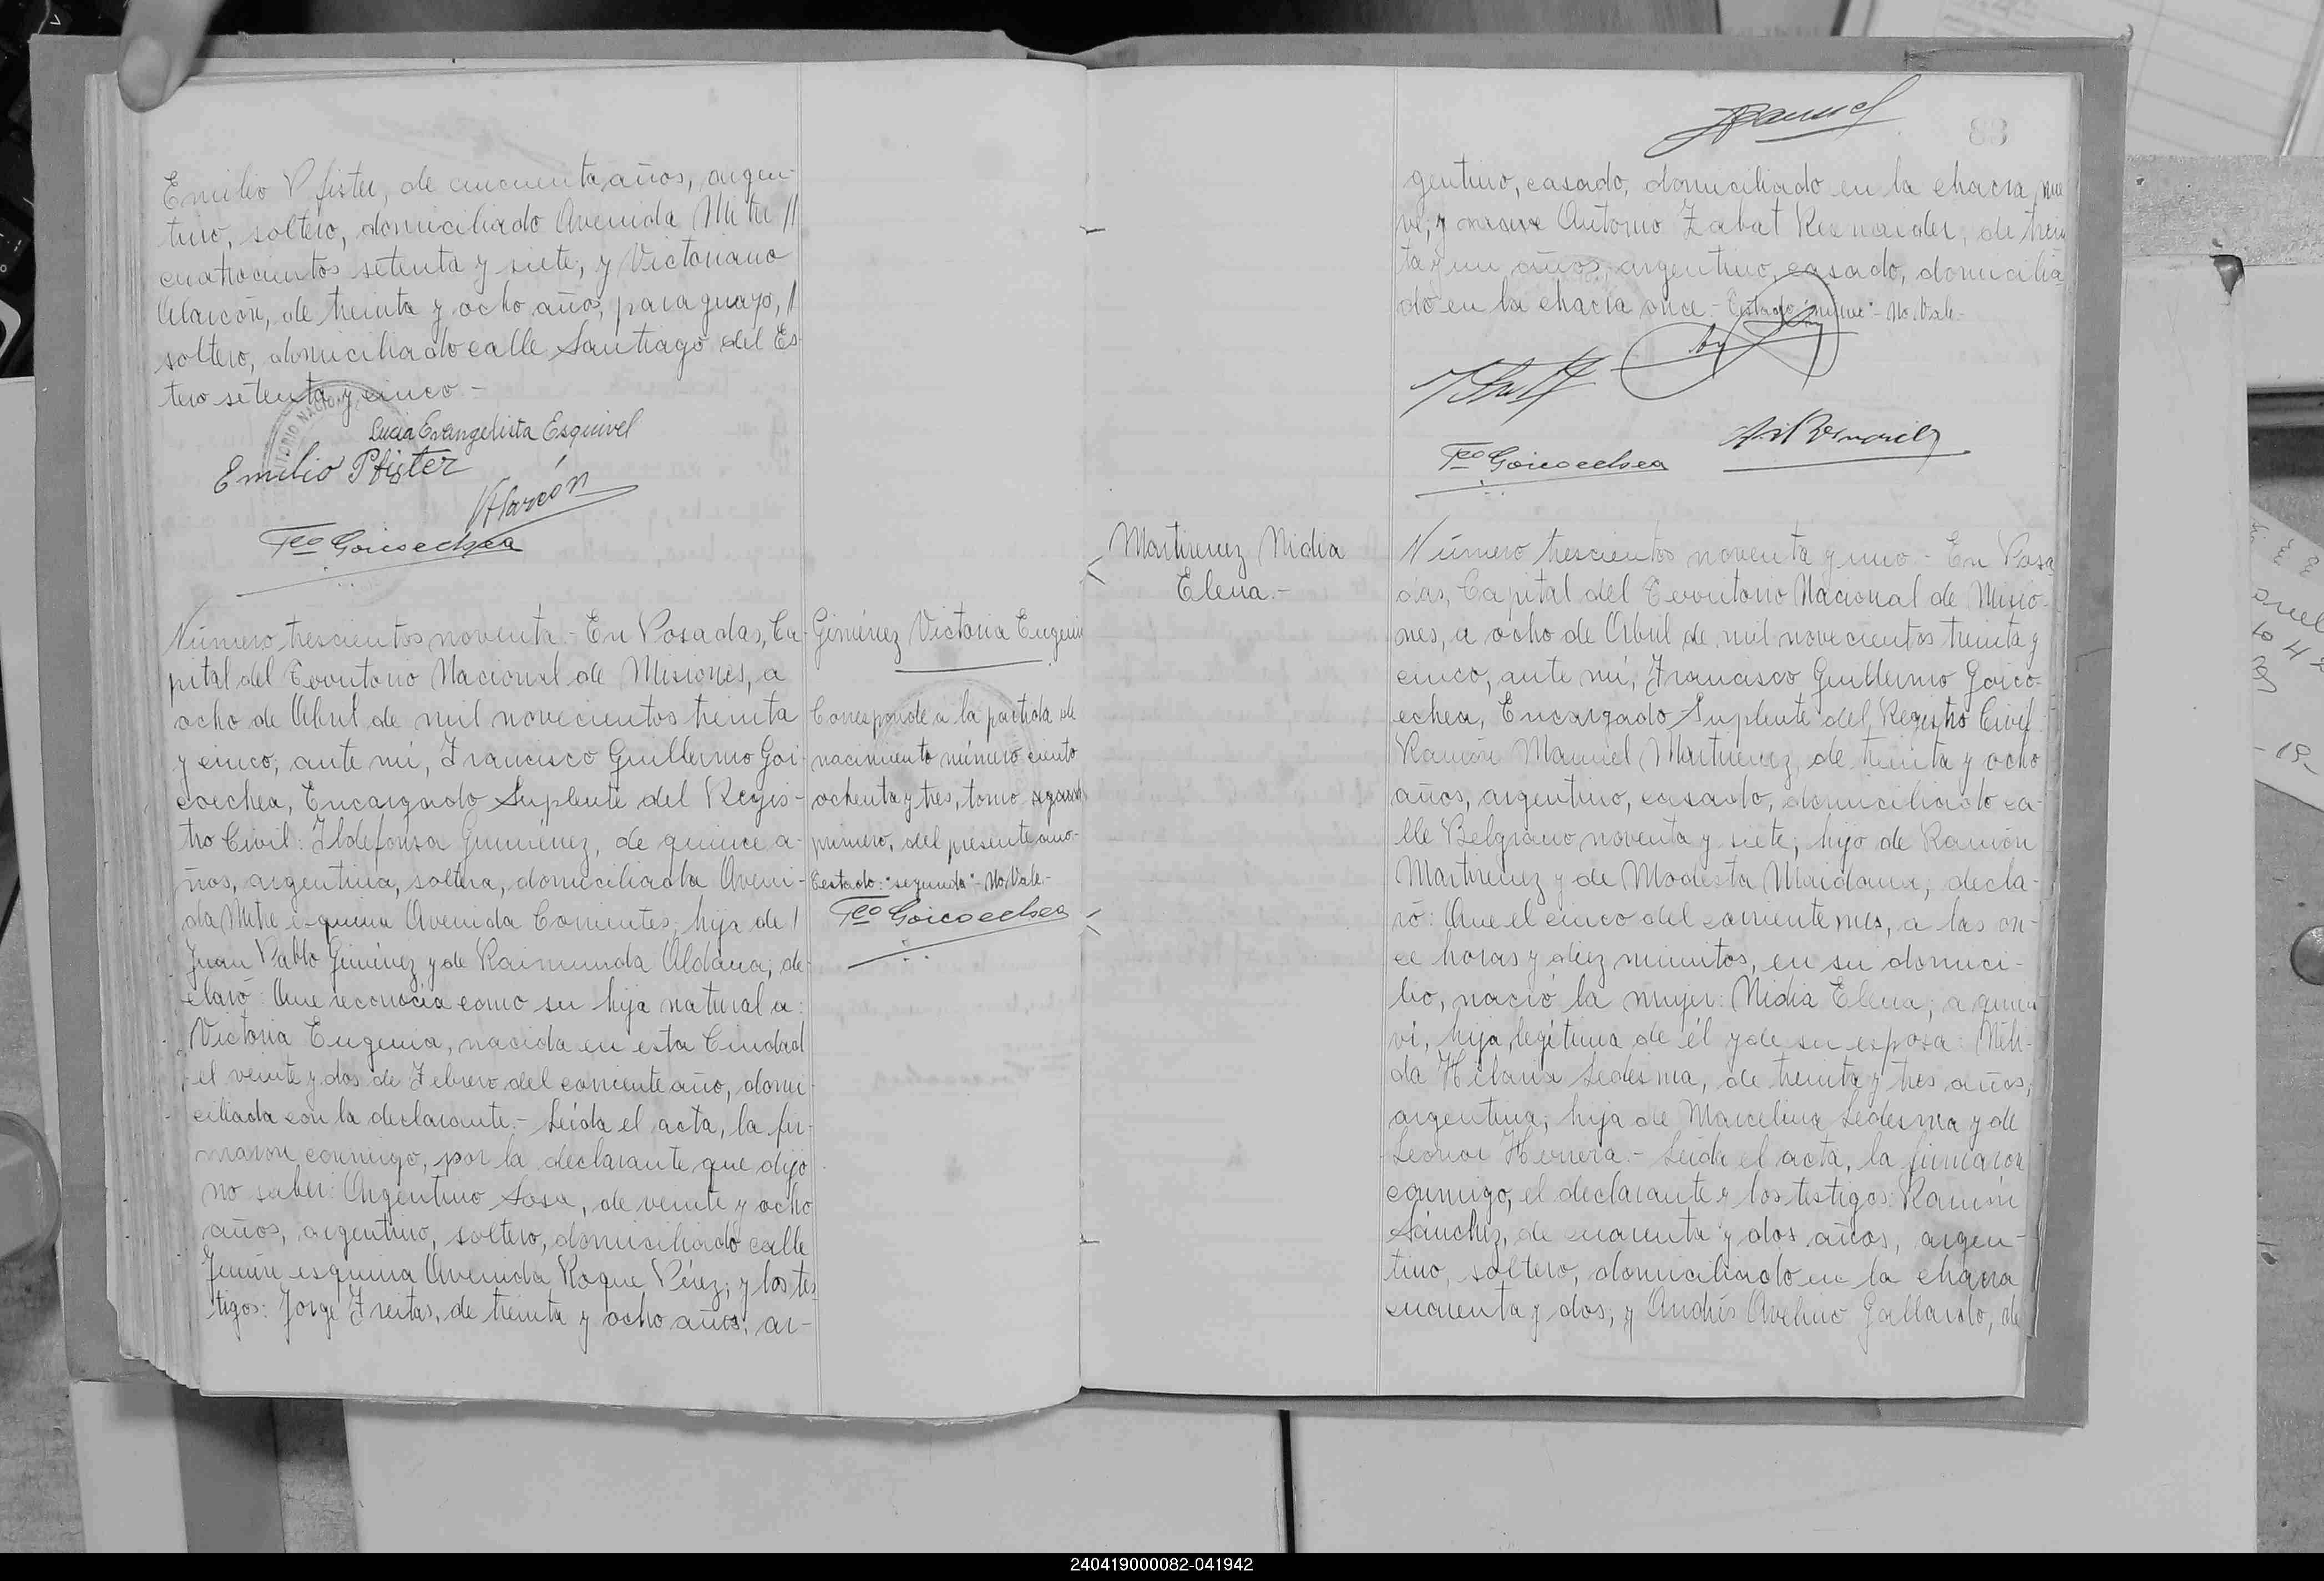 Emilio Pfister, de cincuenta años, argen-
tino, soltero, domiciliado Avenida Mitre //
cuatrocientos setenta y siete; y Victoriano
Alarcón, de treinta y ocho años, paraguayo, //
soltero, domiciliado calle Santiago del Es-
tero setenta y cinco.-
Lucia Evangelista Esquivel
Emilio Pfister
VAlarcón
Fco Goicoechea
Número trescientos noventa.- En Posadas, Ca-
pital del Territorio Nacional de Misiones, a
ocho de Abril de mil novecientos treinta
y cinco, ante mí, Francisco Guillermo Goi-
coechea, Encargado Suplente del Regis-
tro Civil: Ildefonsa Gimenez, de quince a-
ños, argentina, soltera, domiciliada Aveni-
da Mitre esquina Avenida Corrientes; hija de /
Juan Pablo Giménez y de Raimunda Aldana; de-
claró: Que reconocía como su hija natural a:
Victoria Eugenia, nacida en esta Ciudad
el veinte y dos de Febrero del corriente año, domi-
ciliada con la declarante.- Leída el acta, la fir-
maron conmigo, por la declarante que dijo
no saber: Argentino Sosa, de veinte y ocho
años, argentino, soltero, domiciliado calle
Junín esquina Avenida Roque Pérez; y los tes
tigos: Jorge Freitas, de treinta y ocho años, ar-
Giménez Victoria Eugenia
Corresponde a la partida de
nacimiento número ciento
ochenta y tres, tomo segundo
primero, del presente año-
Testado: "segundo"- No Vale.-
Fco Goicoechea
83
gentino, casado, domiciliado en la chacra nue
ve; y Antonio Zabat, de trein
ta y un años, argentino, casado, domicilia
do en la chacra once.- Testado "nueve"- No Vale-
Fco Goicoechea
Martinez Nidia
Elena.-
Número trescientos noventa y uno - En Posa
das, Capital del Territorio Nacional de Misio-
nes, a ocho de Abril de mil novecientos treinta y
cinco, ante mí, Francisco Guillermo Goico-
echea, Encargado Suplente del Registro Civil
Ramón Manuel Martinez, de treinta y ocho
años, argentino, casado, domiciliado ca-
lle Belgrano noventa y siete; hijo de Ramón
Martinez y de Modesta Maidana; decla-
ró: Que el cinco del corriente mes, a las on-
ce horas y diez minutos, en su domici-
lio, nació la mujer: Nidia Elena; a quien
ví, hija legítima de él y de su esposa: Néli-
da Hilaria Ledesma, de treinta y tres años,
argentina; hija de Marcelina Ledesma y de
Leonor Herrera.- Leida el acta, la firmaron
conmigo, el declarante y los testigos: Ramón
Sánchez, de cuarenta y dos años, argen-
tino, soltero, domiciliado en la chacra
cuarenta y dos; y Andrés Avelino Gallardo, de
240419000082-041942